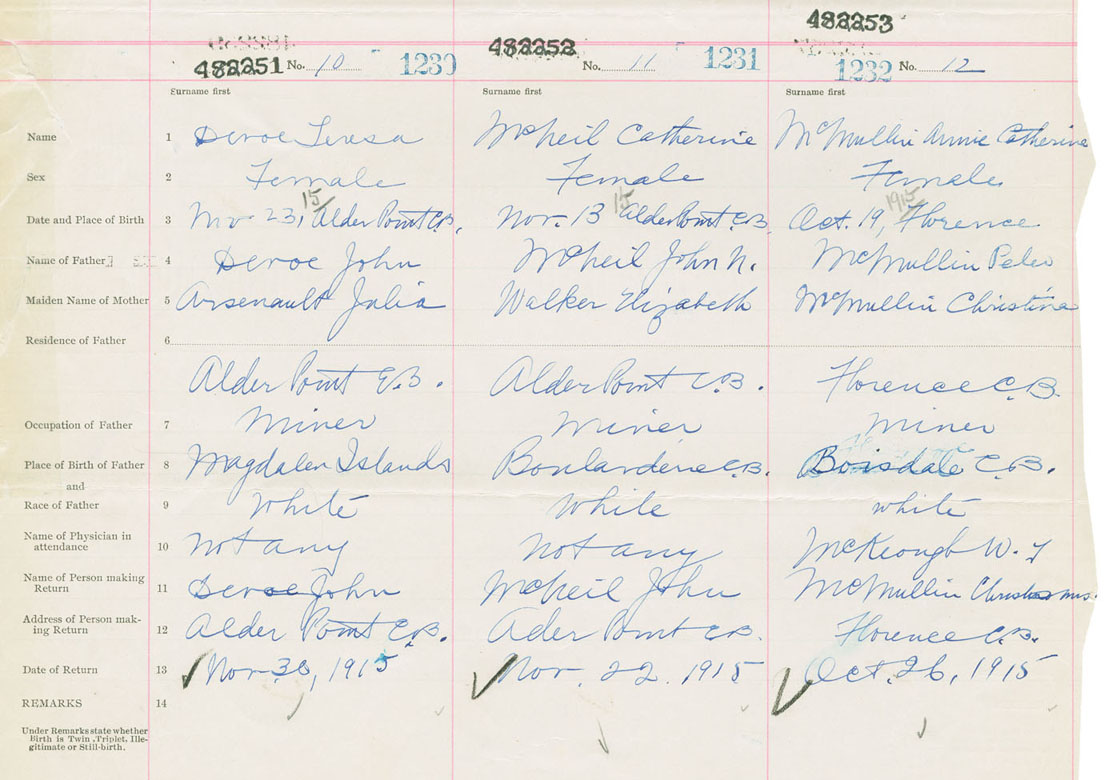 482253
482251 No. 10 1230 482252 No. 11 1231 1232 No. 12
Surname first Surname first Surname first
Name 1 Devoe Teresa McNeil Catherine McMullin Annie Catherine
Sex 2 Female Female Female
15 15 1915
Date and Place of Birth 3 Nov 23, Alder Point C.B. Nov. 13 Alder Point C.B. Oct. 19, Florence
Name of Father 4 Devoe John McNeil John N. McMullin Peter
Maiden Name of Mother 5 Arsenault Julia Walker Elizabeth McMullin Christina
Residence of Father 6
Alder Point C.B. Alder Point C.B. Florence C.B.
Occupation of Father 7 Miner Miner Miner
Place of Birth of Father 8 Magdalen Islands Boulardene C.B. Boisdale C.B.
and
Race of Father 9 White White white
Name of Physician in
attendance 10 not any not any McKeough W.
Name of Person making
Return 11 Devoe John McNeil John McMullin mrs.
Address of Person mak-
ing Return 12 Alder Point C.B. Ader Point C.B. Florence C.B.
Date of Return 13 Nov 30, 1915 Nov. 22 1915 Oct. 26, 1915
REMARKS 14
Under Remarks state whether
Birth is Twin, Triplet, Ille-
gitimate or Still-birth.